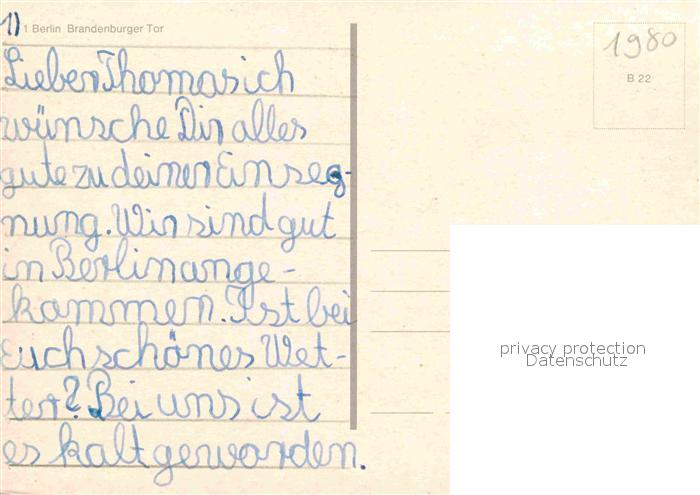 1) 1 Berlin Brandenburger Tor
1980
B 22
Lieber Thomas ich
wünsche Dir alles
gute zu deiner Einseg-
nung. Wir sind gut
in Berlin ange-
kommen. Ist bei
Euch schönes Wet-
ter? Bei uns ist
es kalt geworden.
privacy protection
Datenschutz